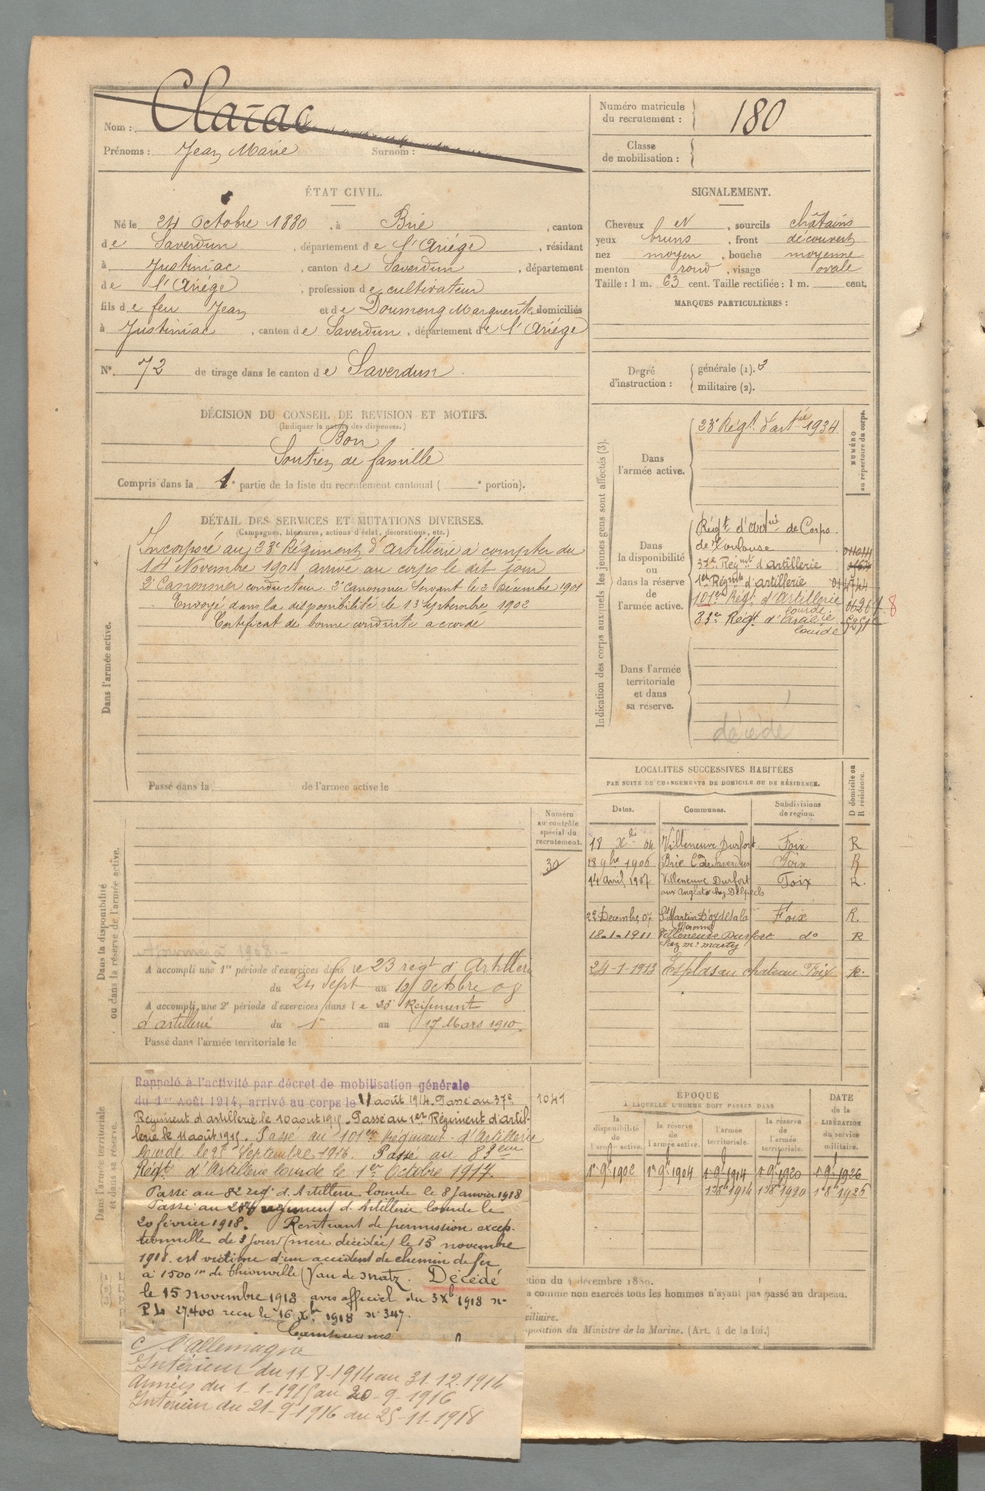 Nom : Clarac
Prénoms : Jean Marie Surnom :
Numéro matricule du recrutement : 180
Classe de mobilisation :
ÉTAT CIVIL.
Né le 24 Octobre 1880, à Brie, canton
de Saverdun, département de l'Ariège, résidant
à Justiniac, canton de Saverdun, département
de l'Ariège, profession de cultivateur
fils de feu Jean et de Doumeng Marguerite domiciliés
à Justiniac, canton de Saverdun, département de l'Ariège
N° 72 de tirage dans le canton de Saverdun.
SIGNALEMENT.
Cheveux N, sourcils châtains
yeux bruns, front découvert
nez moyen, bouche moyenne
menton rond, visage ovale
Taille : 1 m. 63 cent. Taille rectifiée : 1 m. cent.
MARQUES PARTICULIÈRES :
Degré d'instruction : générale (1). 3
militaire (2).
DÉCISION DU CONSEIL DE REVISION ET MOTIFS.
(Indiquer la nature des dispenses.)
Bon
Soutien de famille
Compris dans la 1e partie de la liste du recrutement cantonal ( e portion).
DÉTAIL DES SERVICES ET MUTATIONS DIVERSES.
(Campagnes, blessures, actions d'éclat, décorations, etc.)
Dans l'armée active.
Incorporé au 23e Régiment d'artillerie à compter du
14 Novembre 1901 arrivé au corps le dit jour
2e Canonnier conducteur. 2e Canonnier Servant le 3 Décembre 1901
Envoyé dans la disponibilité le 13 Septembre 1902
Certificat de bonne conduite accordé
Passé dans la de l'armée active le
Indication des corps auxquels les jeunes gens sont affectés (3).
NUMÉRO au répertoire du corps.
Dans l'armée active.
23e Régt. d'artie 1934
Dans la disponibilité ou dans la réserve de l'armée active.
Régt d'artie de Corps
de Toulouse
37e Régiment d'artillerie
1er Régnt d'artillerie
101e Régt. d'Artillerie
lourde
83e Régt d'Artillerie
lourde
Dans l'armée territoriale et dans sa réserve.
décédé
LOCALITÉS SUCCESSIVES HABITÉES
PAR SUITE DE CHANGEMENTS DE DOMICILE OU DE RÉSIDENCE.
Dates. Communes. Subdivisions de région. D domicile ou R résidence.
18 Xbre 04 Villeneuve Durfort Foix R
18 9bre 1906 Brie Con Saverdun Foix R
14 avril 1907 Villeneuve Durfort Foix R.
22 Décembre 07 St Martin d'Oydes Foix R.
18-1-1911 Villeneuve Durfort do R
24-1-1913 Esplas au chateau Foix R.
Numéro au contrôle spécial du recrutement.
30
Dans la disponibilité ou dans la réserve de l'armée active.
A accompli une 1re période d'exercices dans le 23 régt d'Artillerie
du 24 Sept au 10 Octobre 08
A accompli une 2e période d'exercices dans le 23e Régiment
d'artillerie du 1er au 17 Mars 1910.
Passé dans l'armée territoriale le
Dans l'armée territoriale et dans sa réserve.
Rappelé à l'activité par décret de mobilisation générale
du 1er Août 1914, arrivé au corps le 11 août 1914. Passé au 37e
Régiment d'artillerie le 10 août 1915. Passé au 1er Régiment d'artil-
lerie le 11 août 1915. Passé au 101e Régiment d'Artillerie
lourde le 25 Septembre 1916. Passé au 83ème
Régt d'Artillerie lourde le 1er Octobre 1917.
Passé au 82 régt d'Artillerie lourde le 8 Janvier 1918
Passé au régiment d'Artillerie lourde le
20 février 1918. Rentrant de permission excep-
tionnelle de 3 jours (mère décédée) le 15 novembre
1918. est victime d'un accident de chemin de fer
à 1500m de Thionville (Vau de Metz. Décédé
le 15 novembre 1918 avis officiel du 3 Xbre 1918 n°
P.L 27.400 recu le 16 Xbre 1918 n° 347.
Campagnes
C/ l'Allemagne
Intérieur du 11-8-1914 au 31.12.1914
Armées du 1-1-1915 au 20-9-1916
Intérieur du 21-9-1916 au 25-11-1918
1041
ÉPOQUE À LAQUELLE L'HOMME DOIT PASSER DANS
la disponibilité de l'armée active. la réserve de l'armée active. l'armée territoriale. la réserve de l'armée territoriale.
DATE de la LIBÉRATION du service militaire.
1er 9bre 1902 1er 9bre 1904 1er 9bre 1914 1er 9bre 1920 1er 9bre 1926
1er 8bre 1914 1er 8bre 1920 1er 8bre 1926
tion du 4 décembre 1889.
a comme non exercés tous les hommes n'ayant pas passé au drapeau.
ciliaire.
sposition du Ministre de la Marine. (Art. 4 de la loi.)